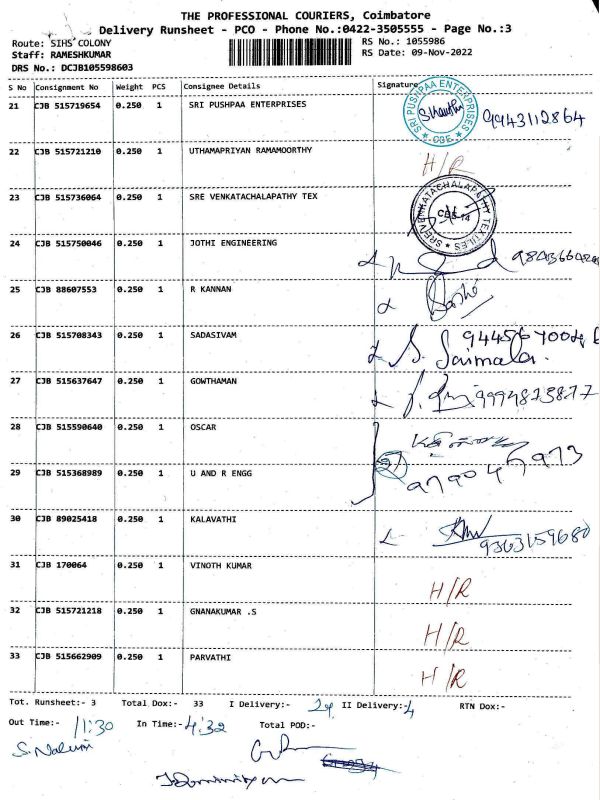 THE PROFESSIONAL COURIERS, Coimbatore
Delivery Runsheet - PCO - Phone No.:0422-3505555 - Page No.:3
Route: SIHS COLONY RS No.: 1055986
Staff: RAMESHKUMAR RS Date: 09-Nov-2022
DRS No.: DCJB105598603
S No Consignment No Weight PCS Consignee Details Signature
21 CJB 515719654 0.250 1 SRI PUSHPAA ENTERPRISES SRI PUSHPAA ENTERPRISES CBE. 9943112864
22 CJB 515721210 0.250 1 UTHAMAPRIYAN RAMAMOORTHY H/R
23 CJB 515736064 0.250 1 SRE VENKATACHALAPATHY TEX SREEVENKATACHALAPATHY TEXTILES CBE-14
24 CJB 515750046 0.250 1 JOTHI ENGINEERING
25 CJB 88607553 0.250 1 R KANNAN
26 CJB 515708343 0.250 1 SADASIVAM S. Sairmala.
27 CJB 515637647 0.250 1 GOWTHAMAN
28 CJB 515590640 0.250 1 OSCAR
29 CJB 515368989 0.250 1 U AND R ENGG
30 CJB 89025418 0.250 1 KALAVATHI 9363159680
31 CJB 170064 0.250 1 VINOTH KUMAR H/R
32 CJB 515721218 0.250 1 GNANAKUMAR .S H/R
33 CJB 515662909 0.250 1 PARVATHI H/R
Tot. Runsheet:- 3 Total Dox:- 33 I Delivery:- 29 II Delivery:-4 RTN Dox:-
Out Time:- 11:30 In Time:- 4:32 Total POD:-
S. Nalini